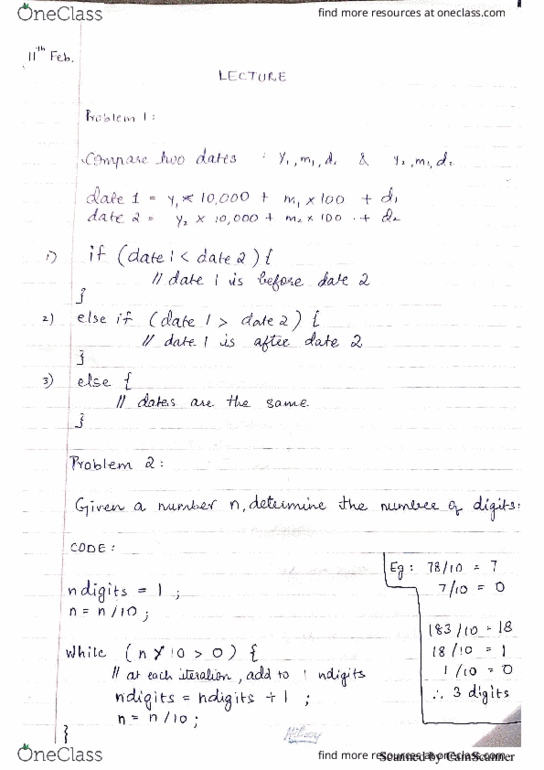 OneClass
find more resources at oneclass.com
11th Feb.
LECTURE
Problem 1:
Compare two dates : y₁, m₁, d₁ & y₂, m₂, d₂
date 1 = y₁ × 10,000 + m₁ × 100 + d₁
date 2 = y₂ × 10,000 + m₂ × 100 + d₂
1) if (date 1 < date 2) {
// date 1 is before date 2
}
2) else if (date 1 > date 2) {
// date 1 is after date 2
}
3) else {
// dates are the same
}
Problem 2:
Given a number n, determine the number of digits:
CODE:
ndigits = 1 ;
n = n/10 ;
while (n 10 > 0) {
// at each iteration, add to 1 ndigits
ndigits = ndigits + 1 ;
n = n/10 ;
}
Eg: 78/10 = 7
7/10 = 0
183/10 = 18
18/10 = 1
1/10 = 0
∴ 3 digits
OneClass
find more resources at oneclass.com
Scanned by CamScanner